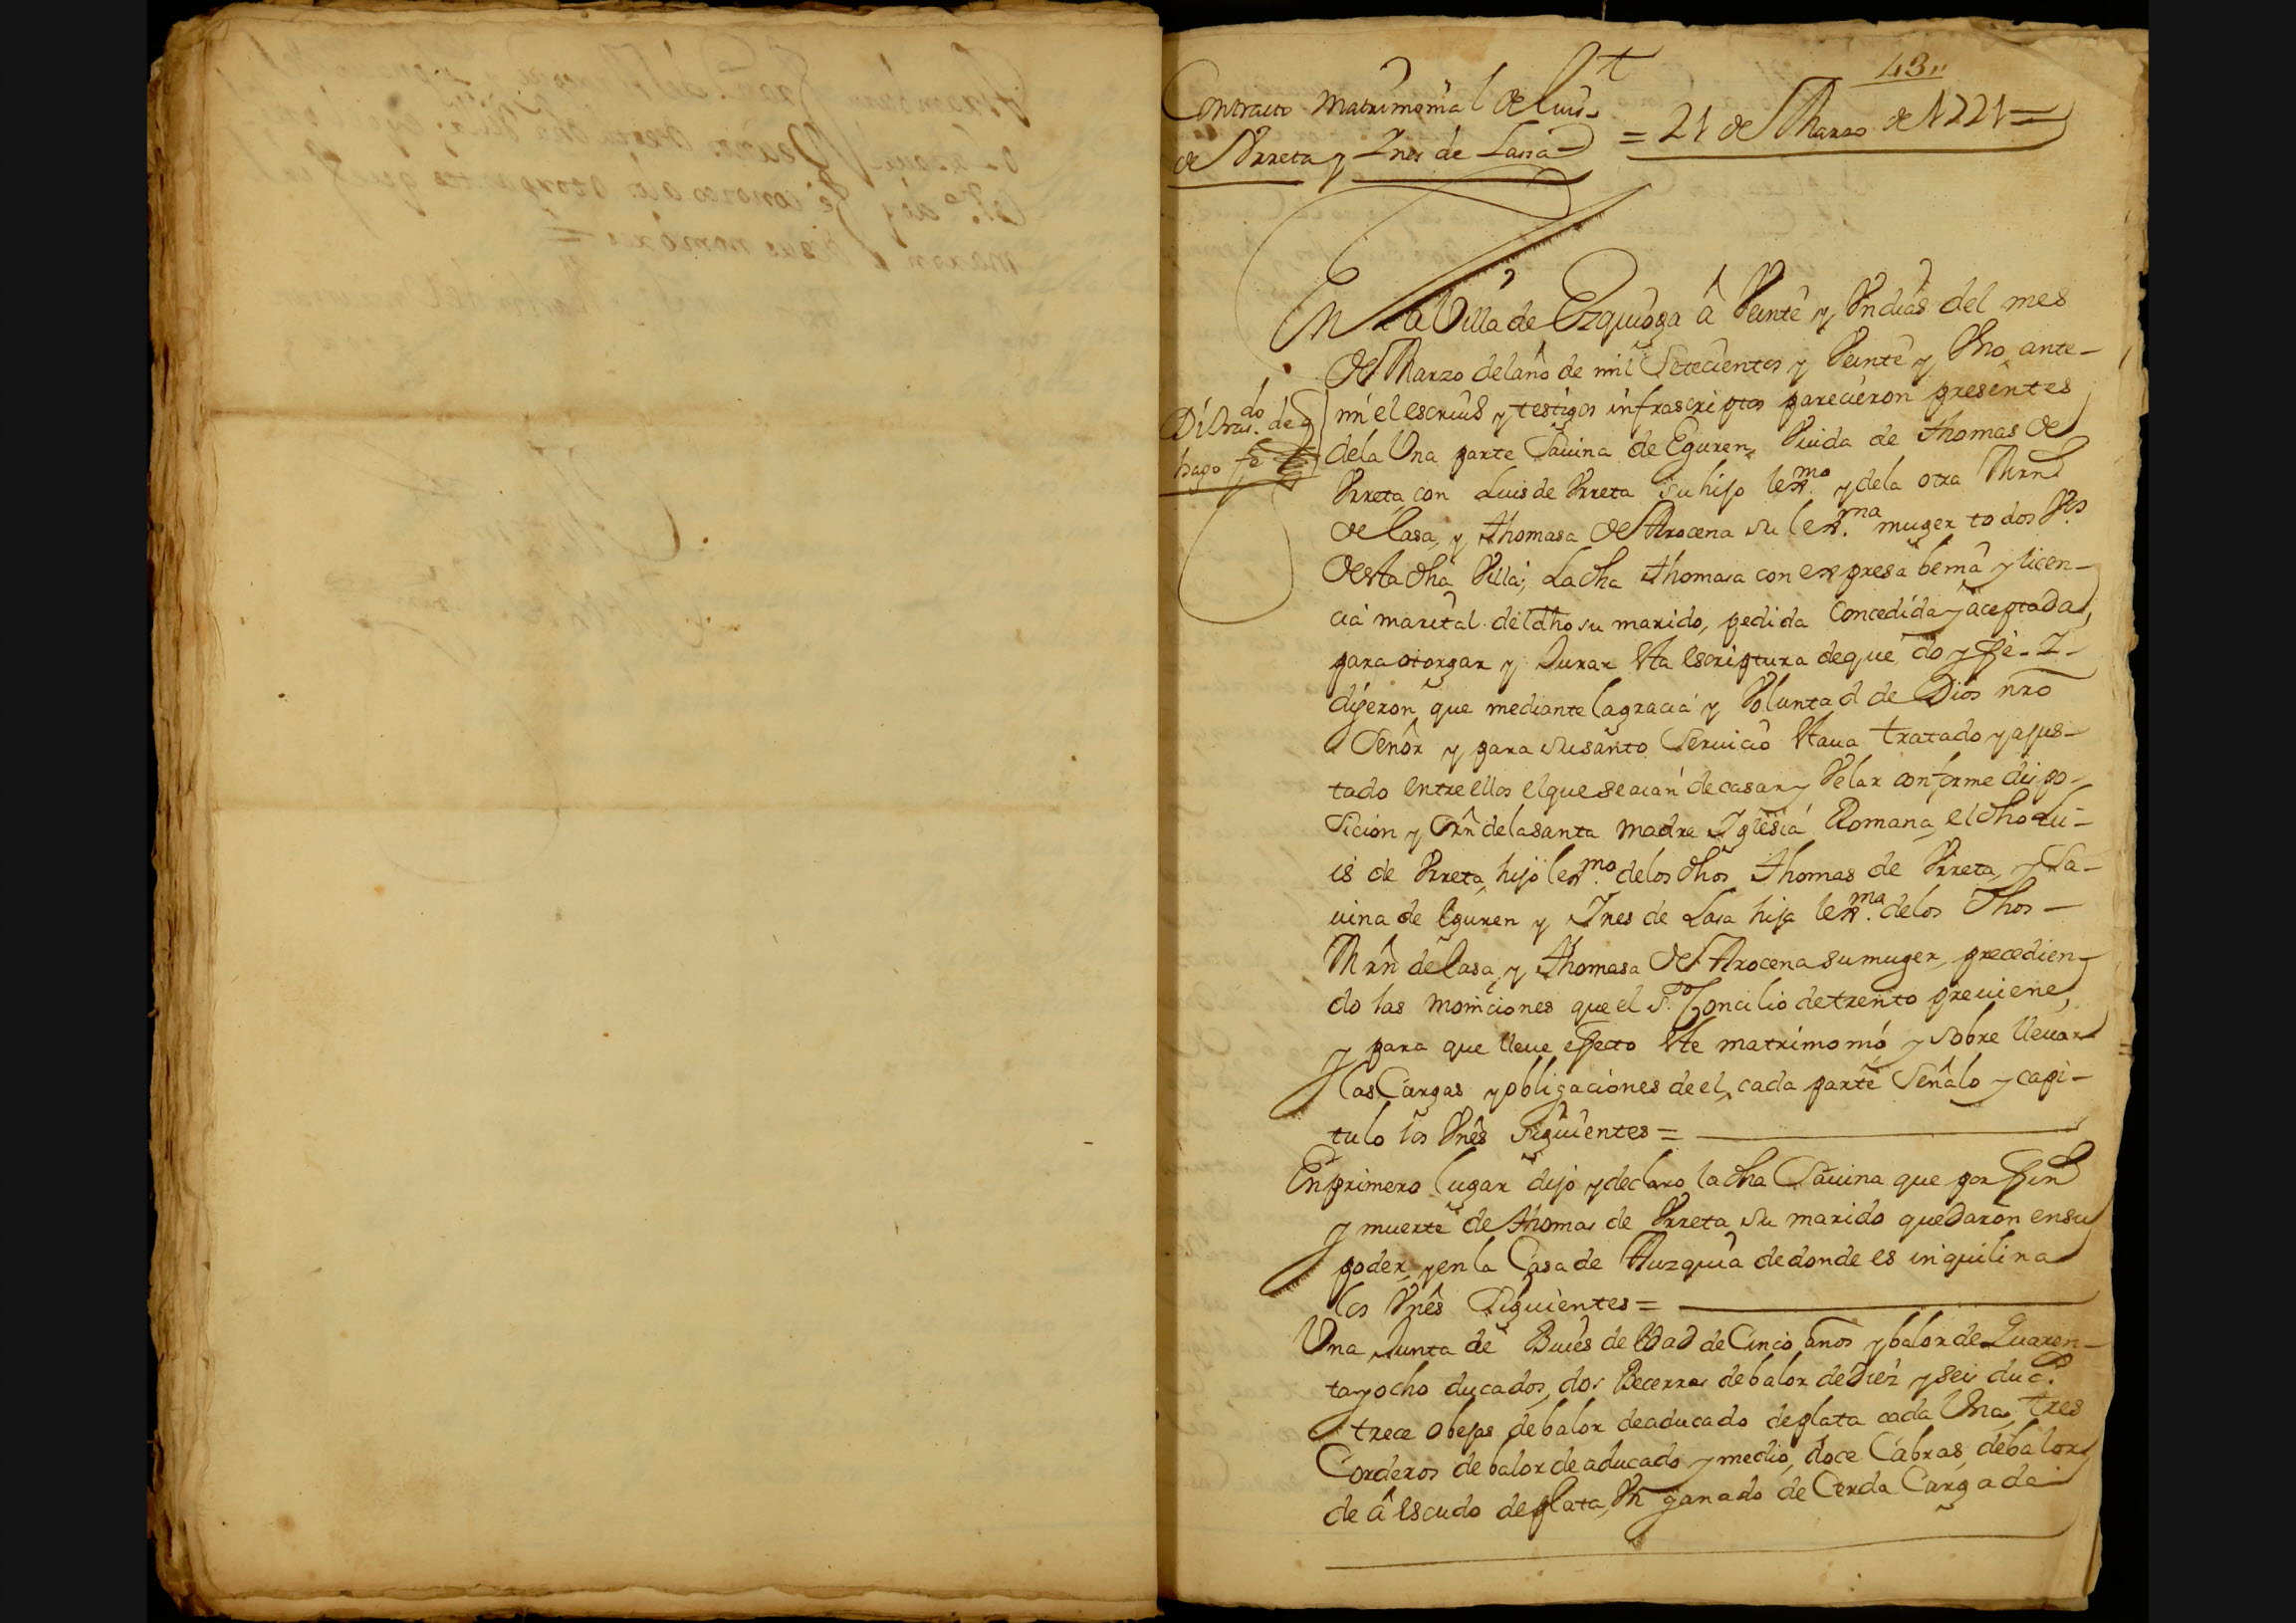 43
Contracto Matrimonial de Luis
de Vrreta y Ines de Lassa
= 21 de Marzo de 1721 =
En la Villa de Ezquioga â Veinte y Vn dias del mes
de Marzo del año de mil Setecientos y Veinte y Vno, ante-
mi el escriuº y testigos infrascriptos parecieron presentes
dela Vna parte Sauina de Eguren, Viuda de Thomas de
Vrreta, con Luis de Vrreta su hijo lexmo. y dela otra Mrn
de Lasa, y Thomasa de Arocena su lexma. muger todos Vos
de sta dha Villa; La dha Thomasa con expresa benia y licen-
cia marital del dho su marido, pedida concedida y aceptada,
para otorgar y Jurar sta escriptura de que doy fe. I-
dijeron que mediante la gracia y Voluntad de Dios nro
Señor y para su santo Seruicio staua tratado y ajus-
tado entre ellos el que se aian de casar y Velar conforme dispo-
sicion y Orn dela santa madre Iglesia Romana, el dho Lu-
is de Vrreta, hijo lexmo. delos dhos Thomas de Vrreta, y Sa-
uina de Eguren y Ines de Lasa hija lexma. delos dhos-
Mrn de Lasa, y Thomasa de Arocena su muger, precedien-
do las moniciones que el S.to Concilio de trento preuiene,
y para que lleue efecto ste matrimonio, y sobre lleuar
las Cargas y obligaciones de el, cada parte Señalo y capi-
tulo los Vnês siguientes =
En primero lugar dijo y declaro la dha Sauina que por fin
y muerte de Thomas de Vrreta su marido quedaron en su
poder, y en la Casa de Auzquia de donde es inquilina
los Vnês Siguientes =
Una Junta de Bueis de edad de Cinco años y balor de Quaren-
ta y ocho ducados, dos Becerras de balor de Diez y seis duc.s
trece obejas de balor de a ducado de plata cada Vna, tres
Corderos de balor de a ducado y medio, doce Cabras, de balor
de â escudo de plata, Vn ganado de Cerda Carga de
hago fe